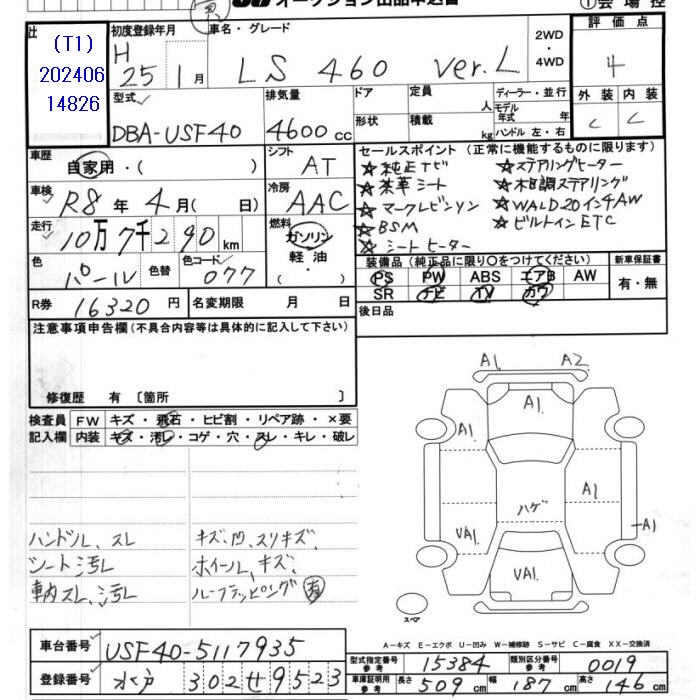 オークション出品申込書
①会場控
出
(T1)
202406
14826
初度登録年月
H
25 1月
車名・グレード
LS 460 ver.L
2WD
・
4WD
評価点
4
外装 内装
C C
型式
DBA-USF40
排気量
4600cc
ドア
形状
定員
人
積載
kg
ディーラー・並行
モデル年式 年
ハンドル 左・右
車歴
自家用・( )
シフト
AT
車検
R8年4月( 日)
冷房
AAC
走行
10万7千290km
燃料
ガソリン
軽油
・( )
色
パール
色替
色コード
077
R券 16320円
名変期限 月 日
セールスポイント (正常に機能するものに限ります)
☆純正ナビ
☆革シート
☆マークレビンソン
☆BSM
☆シートヒーター
☆ステアリングヒーター
☆木目調ステアリング
☆WALD20インチAW
☆ビルトインETC
装備品(純正品に限り○をつけてください)
新車保証書
PS PW ABS エアB AW
SR ナビ TV カワ
有・無
後日品
注意事項申告欄(不具合内容等は具体的に記入して下さい)
修復歴 有 〔箇所 〕
検査員
記入欄
FW キズ・飛石・ヒビ割・リペア跡・×要
内装 キズ・汚レ・コゲ・穴・スレ・キレ・破レ
ハンドル、スレ
シート汚レ
車内スレ、汚レ
キズ、凹、スリキズ、
ホイール、キズ、
ルーフラッピング 有
A1 A2
A1
A1
A1
ハゲ
A1
VA1.
VA1.
スペア
A−キズ E−エクボ U−凹み W−補修跡 S−サビ C−腐食 XX−交換済
車台番号 USF40-5117935
登録番号 水戸 302せ9523
型式指定番号 参考 15384
類別区分番号 参考 0019
車庫証明用 参考 長さ 509cm 幅 187cm 高さ 146cm